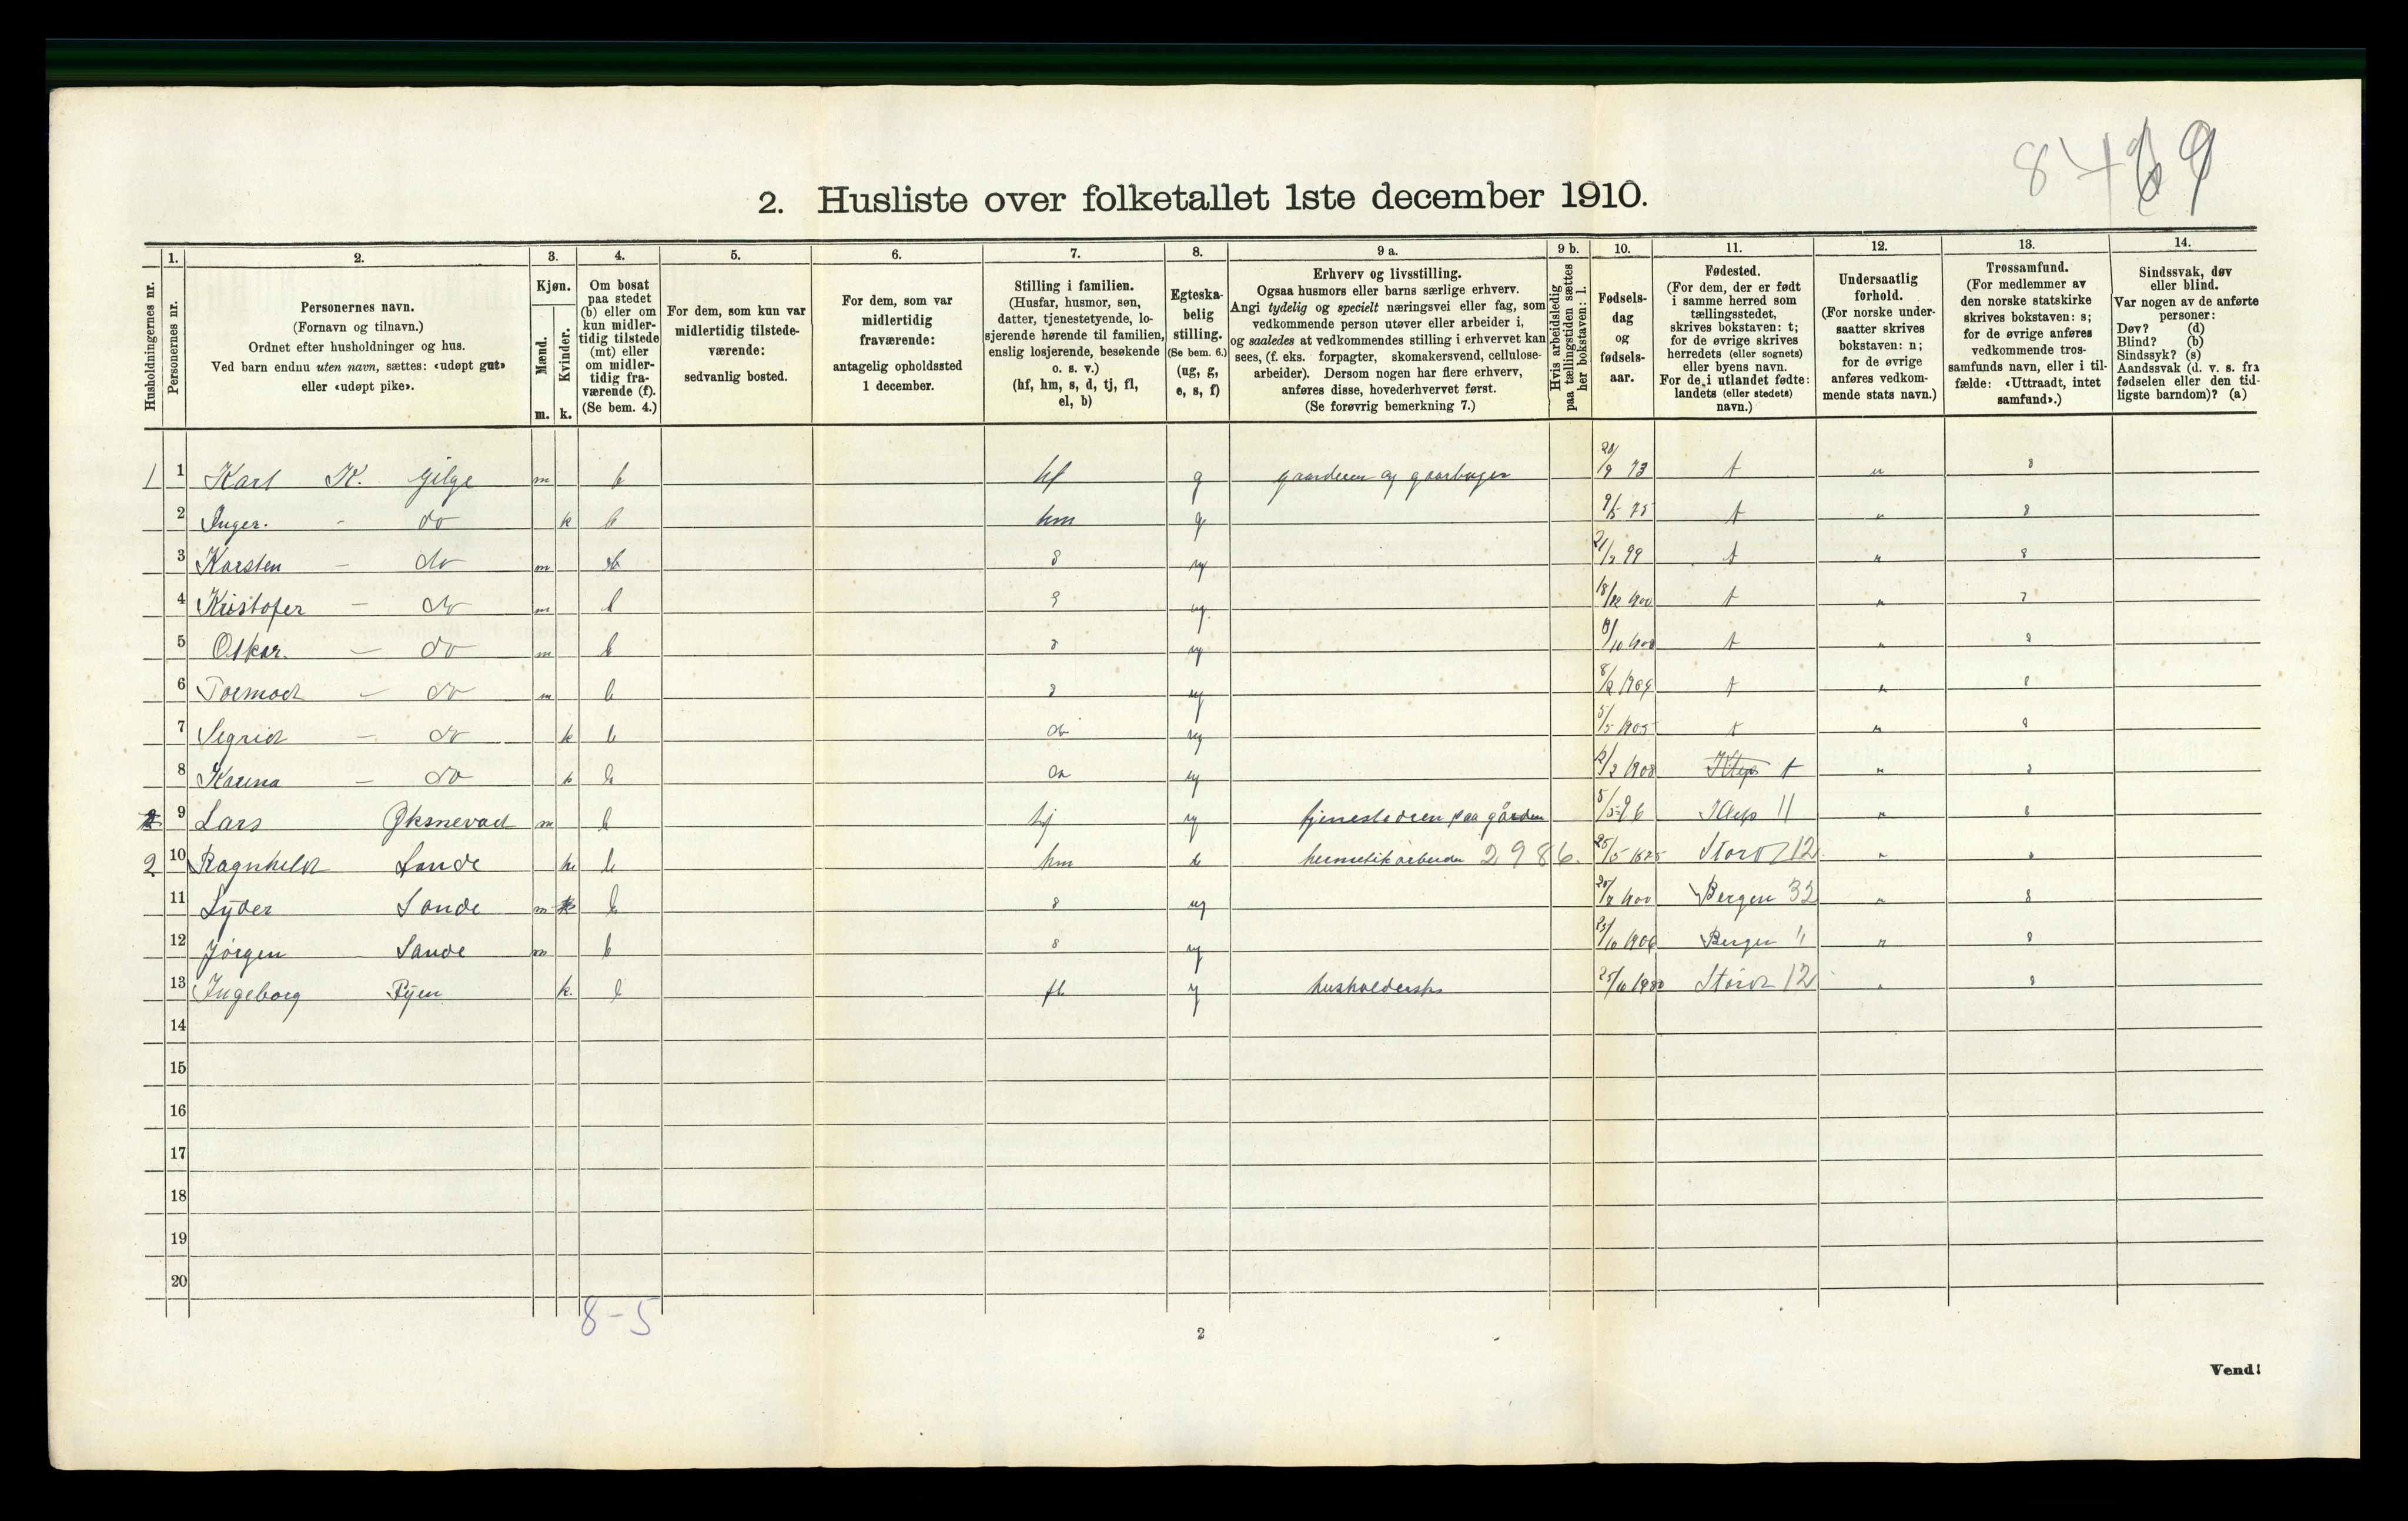 8469
2. Husliste over folketallet 1ste december 1910.
Husholdningernes nr.
1. Personernes nr.
2. Personernes navn.
(Fornavn og tilnavn.)
Ordnet efter husholdninger og hus.
Ved barn endnu uten navn, sættes: «udøpt gut»
eller «udøpt pike».
3. Kjøn.
Mænd. m.
Kvinder. k.
4. Om bosat
paa stedet
(b) eller om
kun midler-
tidig tilstede
(mt) eller
om midler-
tidig fra-
værende (f).
(Se bem. 4.)
5. For dem, som kun var
midlertidig tilstede-
værende:
sedvanlig bosted.
6. For dem, som var
midlertidig
fraværende:
antagelig opholdssted
1 december.
7. Stilling i familien.
(Husfar, husmor, søn,
datter, tjenestetyende, lo-
sjerende hørende til familien,
enslig losjerende, besøkende
o. s. v.)
(hf, hm, s, d, tj, fl,
el, b)
8. Egteska-
belig
stilling.
(Se bem. 6.)
(ug, g,
e, s, f)
9 a. Erhverv og livsstilling.
Ogsaa husmors eller barns særlige erhverv.
Angi tydelig og specielt næringsvei eller fag, som
vedkommende person utøver eller arbeider i,
og saaledes at vedkommendes stilling i erhvervet kan
sees, (f. eks. forpagter, skomakersvend, cellulose-
arbeider). Dersom nogen har flere erhverv,
anføres disse, hovederhvervet først.
(Se forøvrig bemerkning 7.)
9 b. Hvis arbeidsledig
paa tællingstiden sættes
her bokstaven: l.
10. Fødsels-
dag
og
fødsels-
aar.
11. Fødested.
(For dem, der er født
i samme herred som
tællingsstedet,
skrives bokstaven: t;
for de øvrige skrives
herredets (eller sognets)
eller byens navn.
For de i utlandet fødte:
landets (eller stedets)
navn.)
12. Undersaatlig
forhold.
(For norske under-
saatter skrives
bokstaven: n;
for de øvrige
anføres vedkom-
mende stats navn.)
13. Trossamfund.
(For medlemmer av
den norske statskirke
skrives bokstaven: s;
for de øvrige anføres
vedkommende tros-
samfunds navn, eller i til-
fælde: «Uttraadt, intet
samfund».)
14. Sindssvak, døv
eller blind.
Var nogen av de anførte
personer:
Døv? (d)
Blind? (b)
Sindssyk? (s)
Aandssvak (d. v. s. fra
fødselen eller den tid-
ligste barndom)? (a)
1 1 Karl K. Gilge m b hf g t n s
2 Inger. - do k b hm g 9/5 75 t n s
3 Karsten - do m b s ug 99 t n s
4 Kristofer - do m b s ug 18/12 900 t n
5 Oskar. - do m b s ug t n s
6 Tormod - do m b s ug t n s
7 Sigrid - do k b d ug 5/5 1905 t n s
8 Karina - do k b d ug 1908 Klep t n s
9 Lars Øksnevad m b tj ug 5/5 96 Klep 11 n s
2 10 Ragnhild Sande k b hm hermetikarbeider 2986. 25/5 1875 Stord 12 n s
11 Lyder Sande m b s ug 900 Bergen 33 n s
12 Jørgen Sande m b s ug 1906 Bergen " n s
13 Ingeborg k. b fl husholderske Stord 12 s
14
15
16
17
18
19
20
8-5
2
Vend!